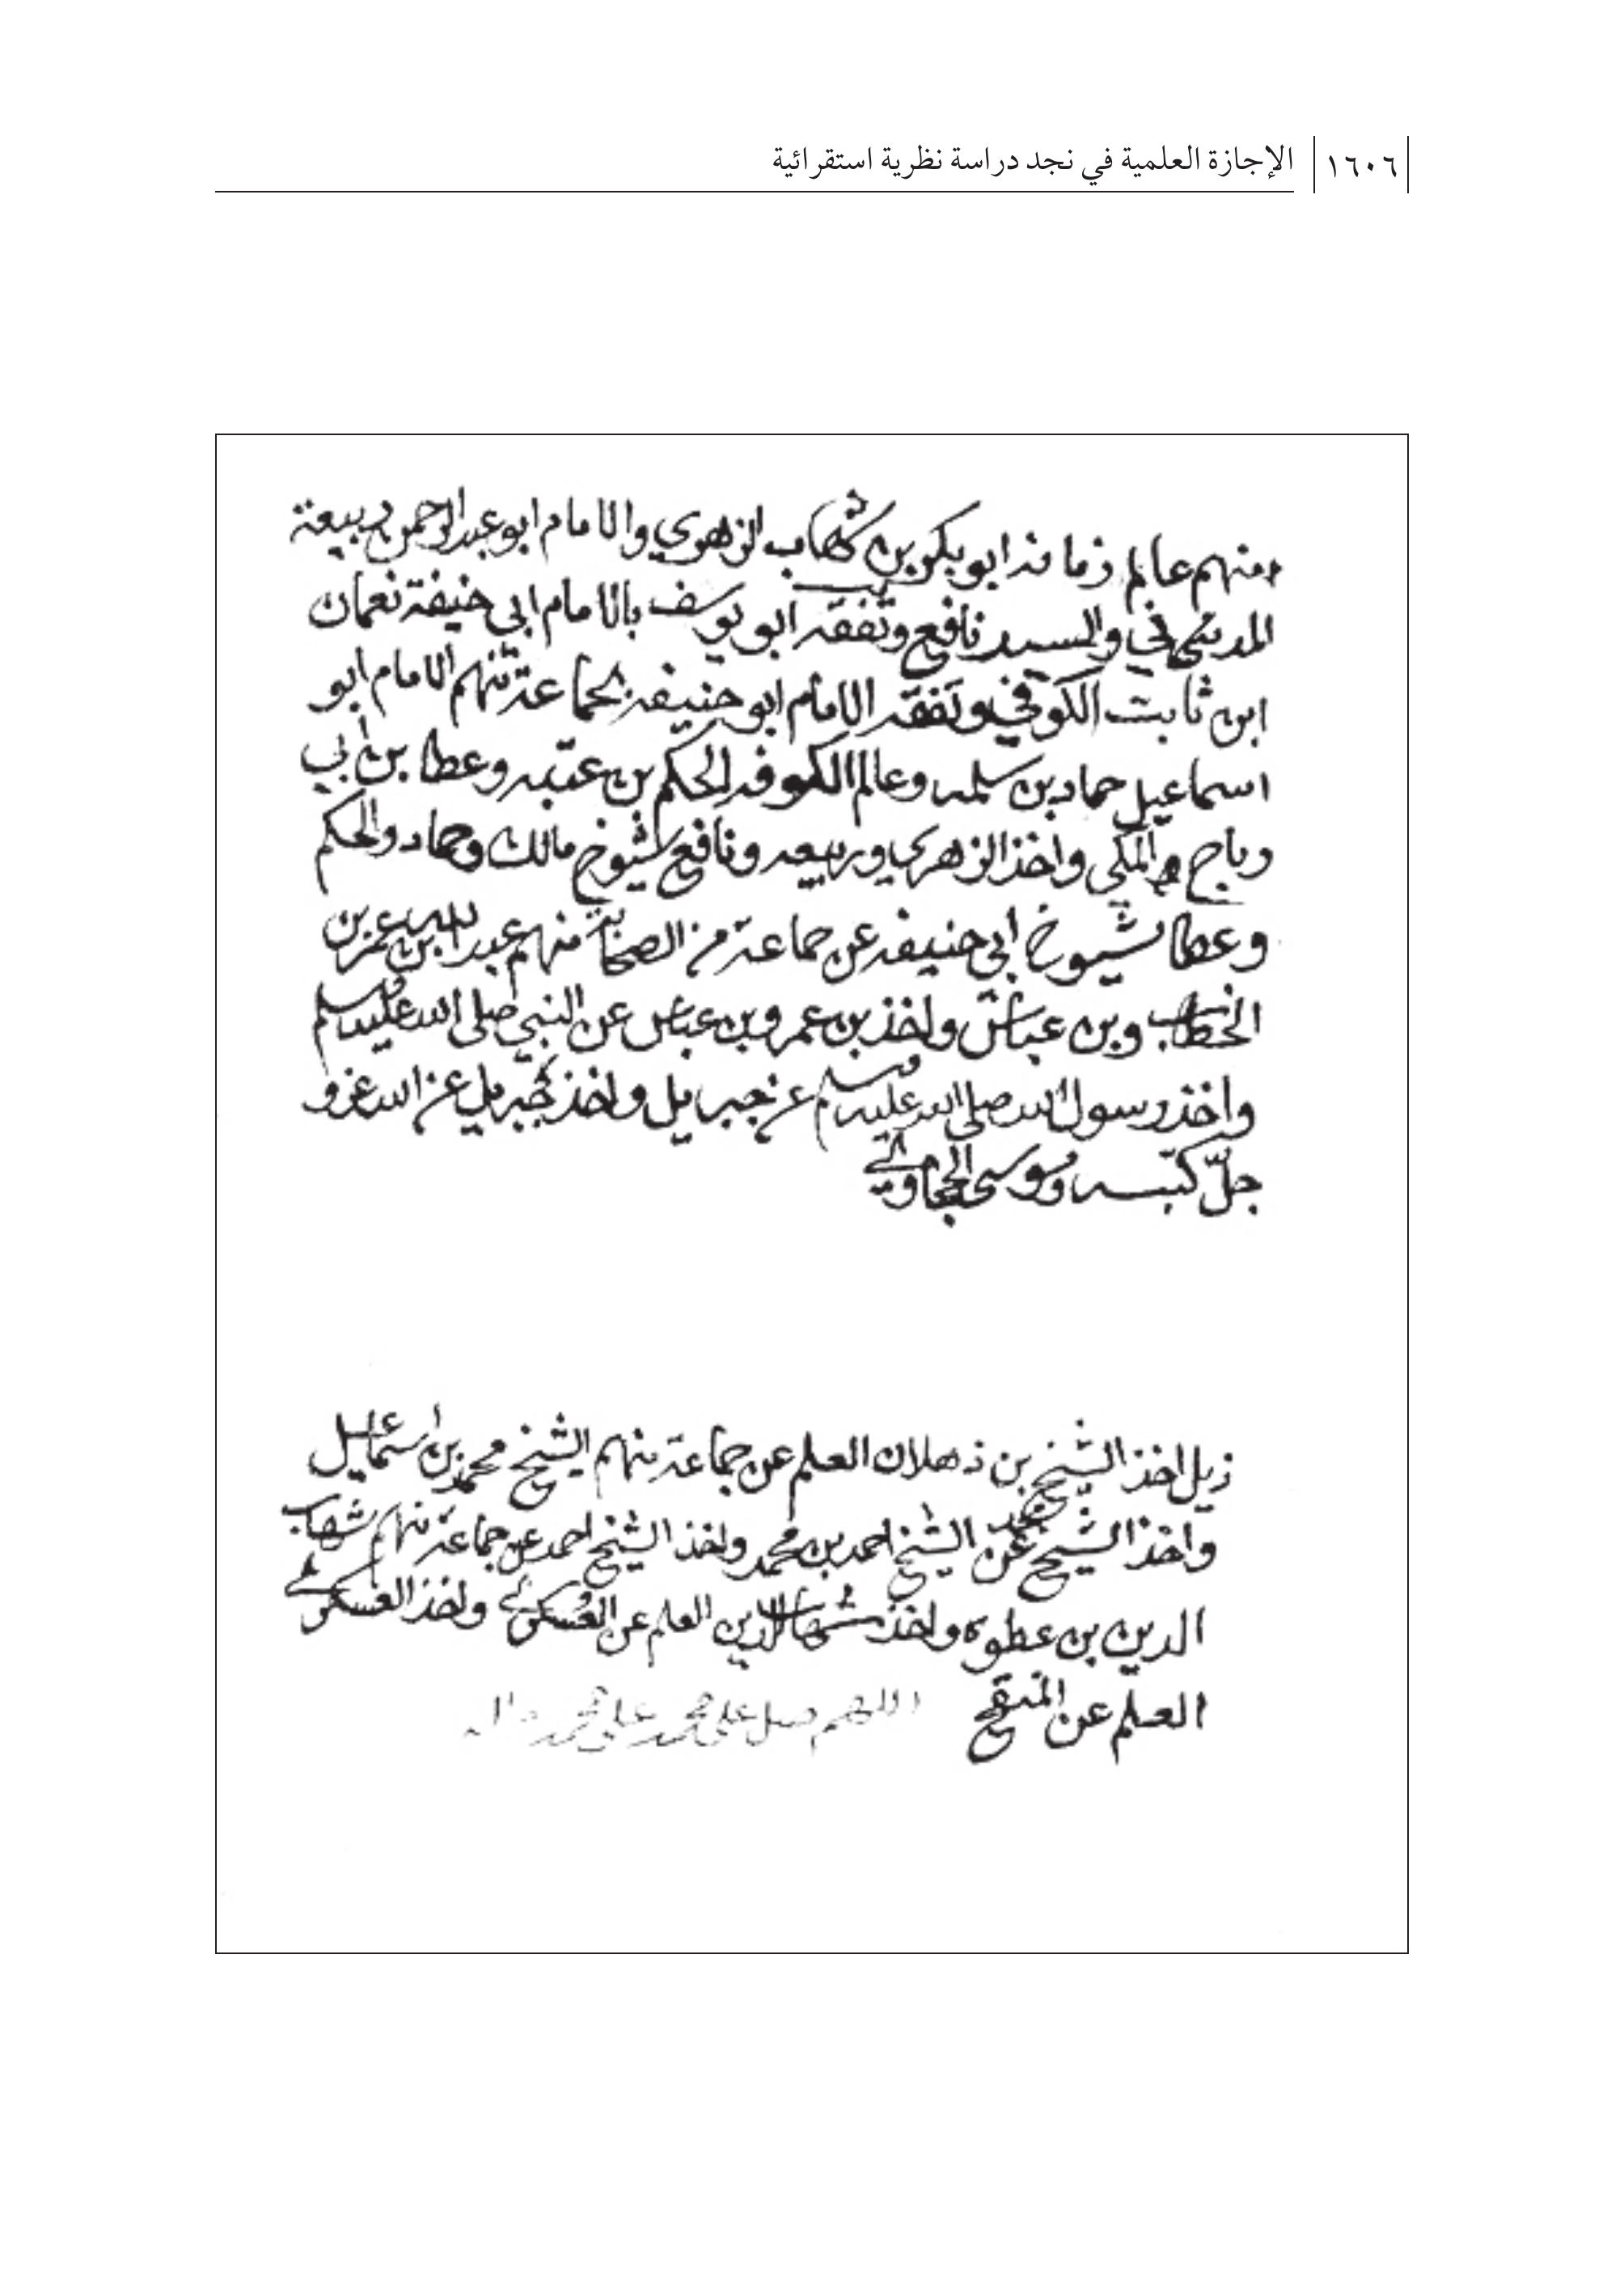 ١٦٠٦ الإجازة العلمية في نجد دراسة نظرية استقرائية
منهم عالم زمانه ابو بكر بن شهاب الزهري والامام ابو عبد الرحمن ربيعة
المدني والسيد نافع وتفقه ابو يوسف بالامام ابي حنيفة نعمان
ابن ثابت الكوفي وتفقه الامام ابو حنيفه بجماعة منهم الامام ابو
اسماعيل حماد بن سلمه وعالم الكوفه الحكم بن عتبه وعطا بن أبي
رباح المكي واخذ الزهري وربيعه ونافع شيوخ مالك وحماد والحكم
وعطا شيوخ ابي حنيفه عن جماعة من الصحابة منهم عبد الله بن عمر بن
الخطاب وبن عباس واخذ بن عمر وبن عباس عن النبي صلى الله عليه وسلم
واخذ رسول الله صلى الله عليه وسلم عن جبريل واخذ جبريل عن الله عز و
جل كتبه موسى الحجاوي
ذيل اخذ الشيخ بن ذهلان العلم عن جماعة منهم الشيخ محمد بن اسماعيل
واخذ الشيخ محمد عن الشيخ احمد بن محمد واخذ الشيخ احمد عن جماعة منهم شهاب
الدين بن عطوه واخذ شهاب الدين العلم عن العسكري واخذ العسكري
العلم عن المنقح اللهم صل على محمد وعلى محمد